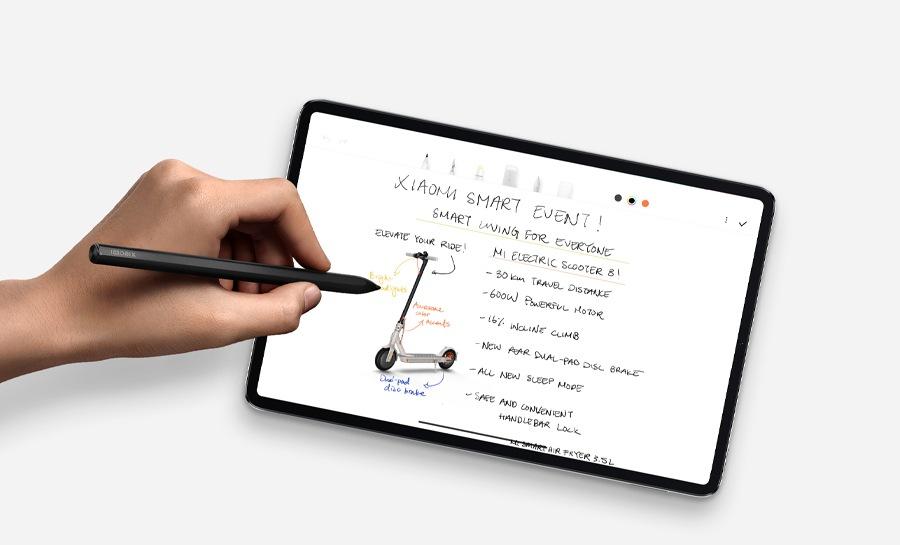 XIAOMI SMART EVENT!
SMART LIVING FOR EVERYONE
ELEVATE YOUR RIDE!
Bright
Awesome
color
accents
Dual-pad
disc brake
MI ELECTRIC SCOOTER 3!
- 30 km TRAVEL DISTANCE
- 600W POWERFUL MOTOR
- 16% INCLINE CLIMB
- NEW REAR DUAL-PAD DISC BRAKE
- ALL NEW SLEEP MODE
- SAFE AND CONVENIENT
HANDLEBAR LOCK
MI SMART AIR FRYER 3.5L
xiaomi